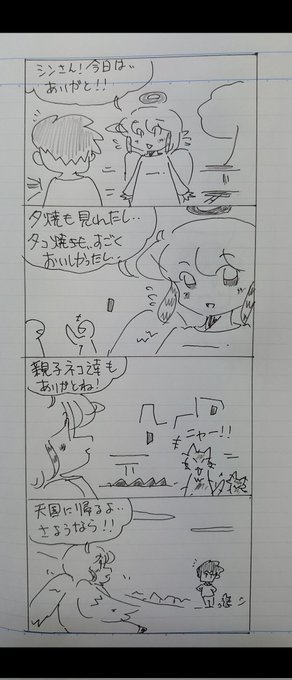 シンさん!今日は、
ありがと!!
夕焼も見れたし‥
タコ焼きも、すごく
おいしかったし‥
親子ネコ達も
ありがとね!
ニャー!!
天国に帰るよ‥
さようなら!!